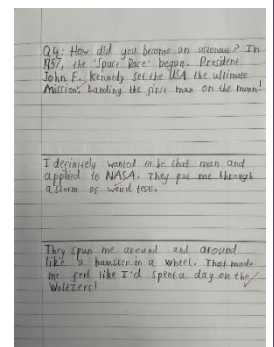 Q4: How did you become an astronaut? In
1957, the 'Space Race' began. President
John F. Kennedy set the USA the ultimate
Mission: Landing the first man on the moon!
I definitely wanted to be that man and
applied to NASA. They put me through
a storm of weird tests.
They spun me around and around
like a hamster in a wheel. That made
me feel like I'd spent a day on the
Waltzers!